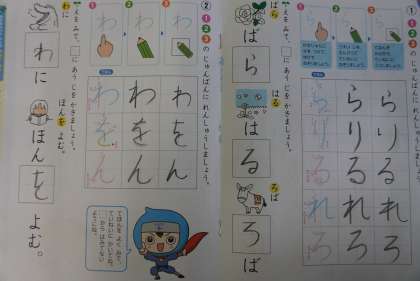 ①
①②③の じゅんばんに れんしゅうしましょう。
ら ら ら
り り り
る る る
れ れ れ
ろ ろ ろ
えを みて、□に あう じを かきましょう。
ばら
ばら
はる
はる
ろば
ろば
②
①②③の じゅんばんに れんしゅうしましょう。
わ わ わ
を を を
ん ん ん
えを みて、□に あう じを かきましょう。
わに
わに
ほんを よむ。
ほんを よむ。
てほんを よく みて、
ていねいに かいてね。
□から はみでない
ようにね。